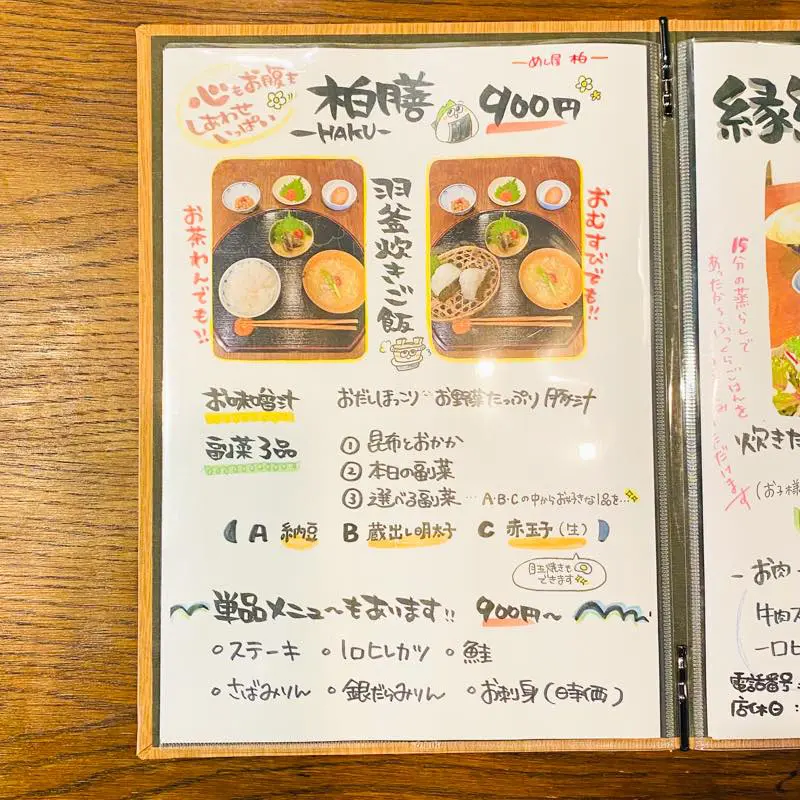 めし屋 柏
心もお腹も
しあわせ
いっぱい
柏膳
-HAKU-
900円
お茶わんでも!!
羽釜炊きご飯
おむすびでも!!
お味噌汁 おだしほっこり お野菜たっぷり豚汁
副菜3品
① 昆布とおかか
② 本日の副菜
③ 選べる副菜 … A・B・Cの中からお好きな1品を…
A 納豆 B 蔵出し明太子 C 赤玉子(生)
目玉焼きも
できます
単品メニューもあります!! 900円~
ステーキ ・ 一口ヒレカツ ・ 鮭
さばみりん ・ 銀だらみりん ・ お刺身(時価)
縁
15分の蒸らしで
あったか〜ふっくらごはんを
炊きた
(お子様
- お肉 -
牛肉ス
一口ヒ
電話番号:
店休日: